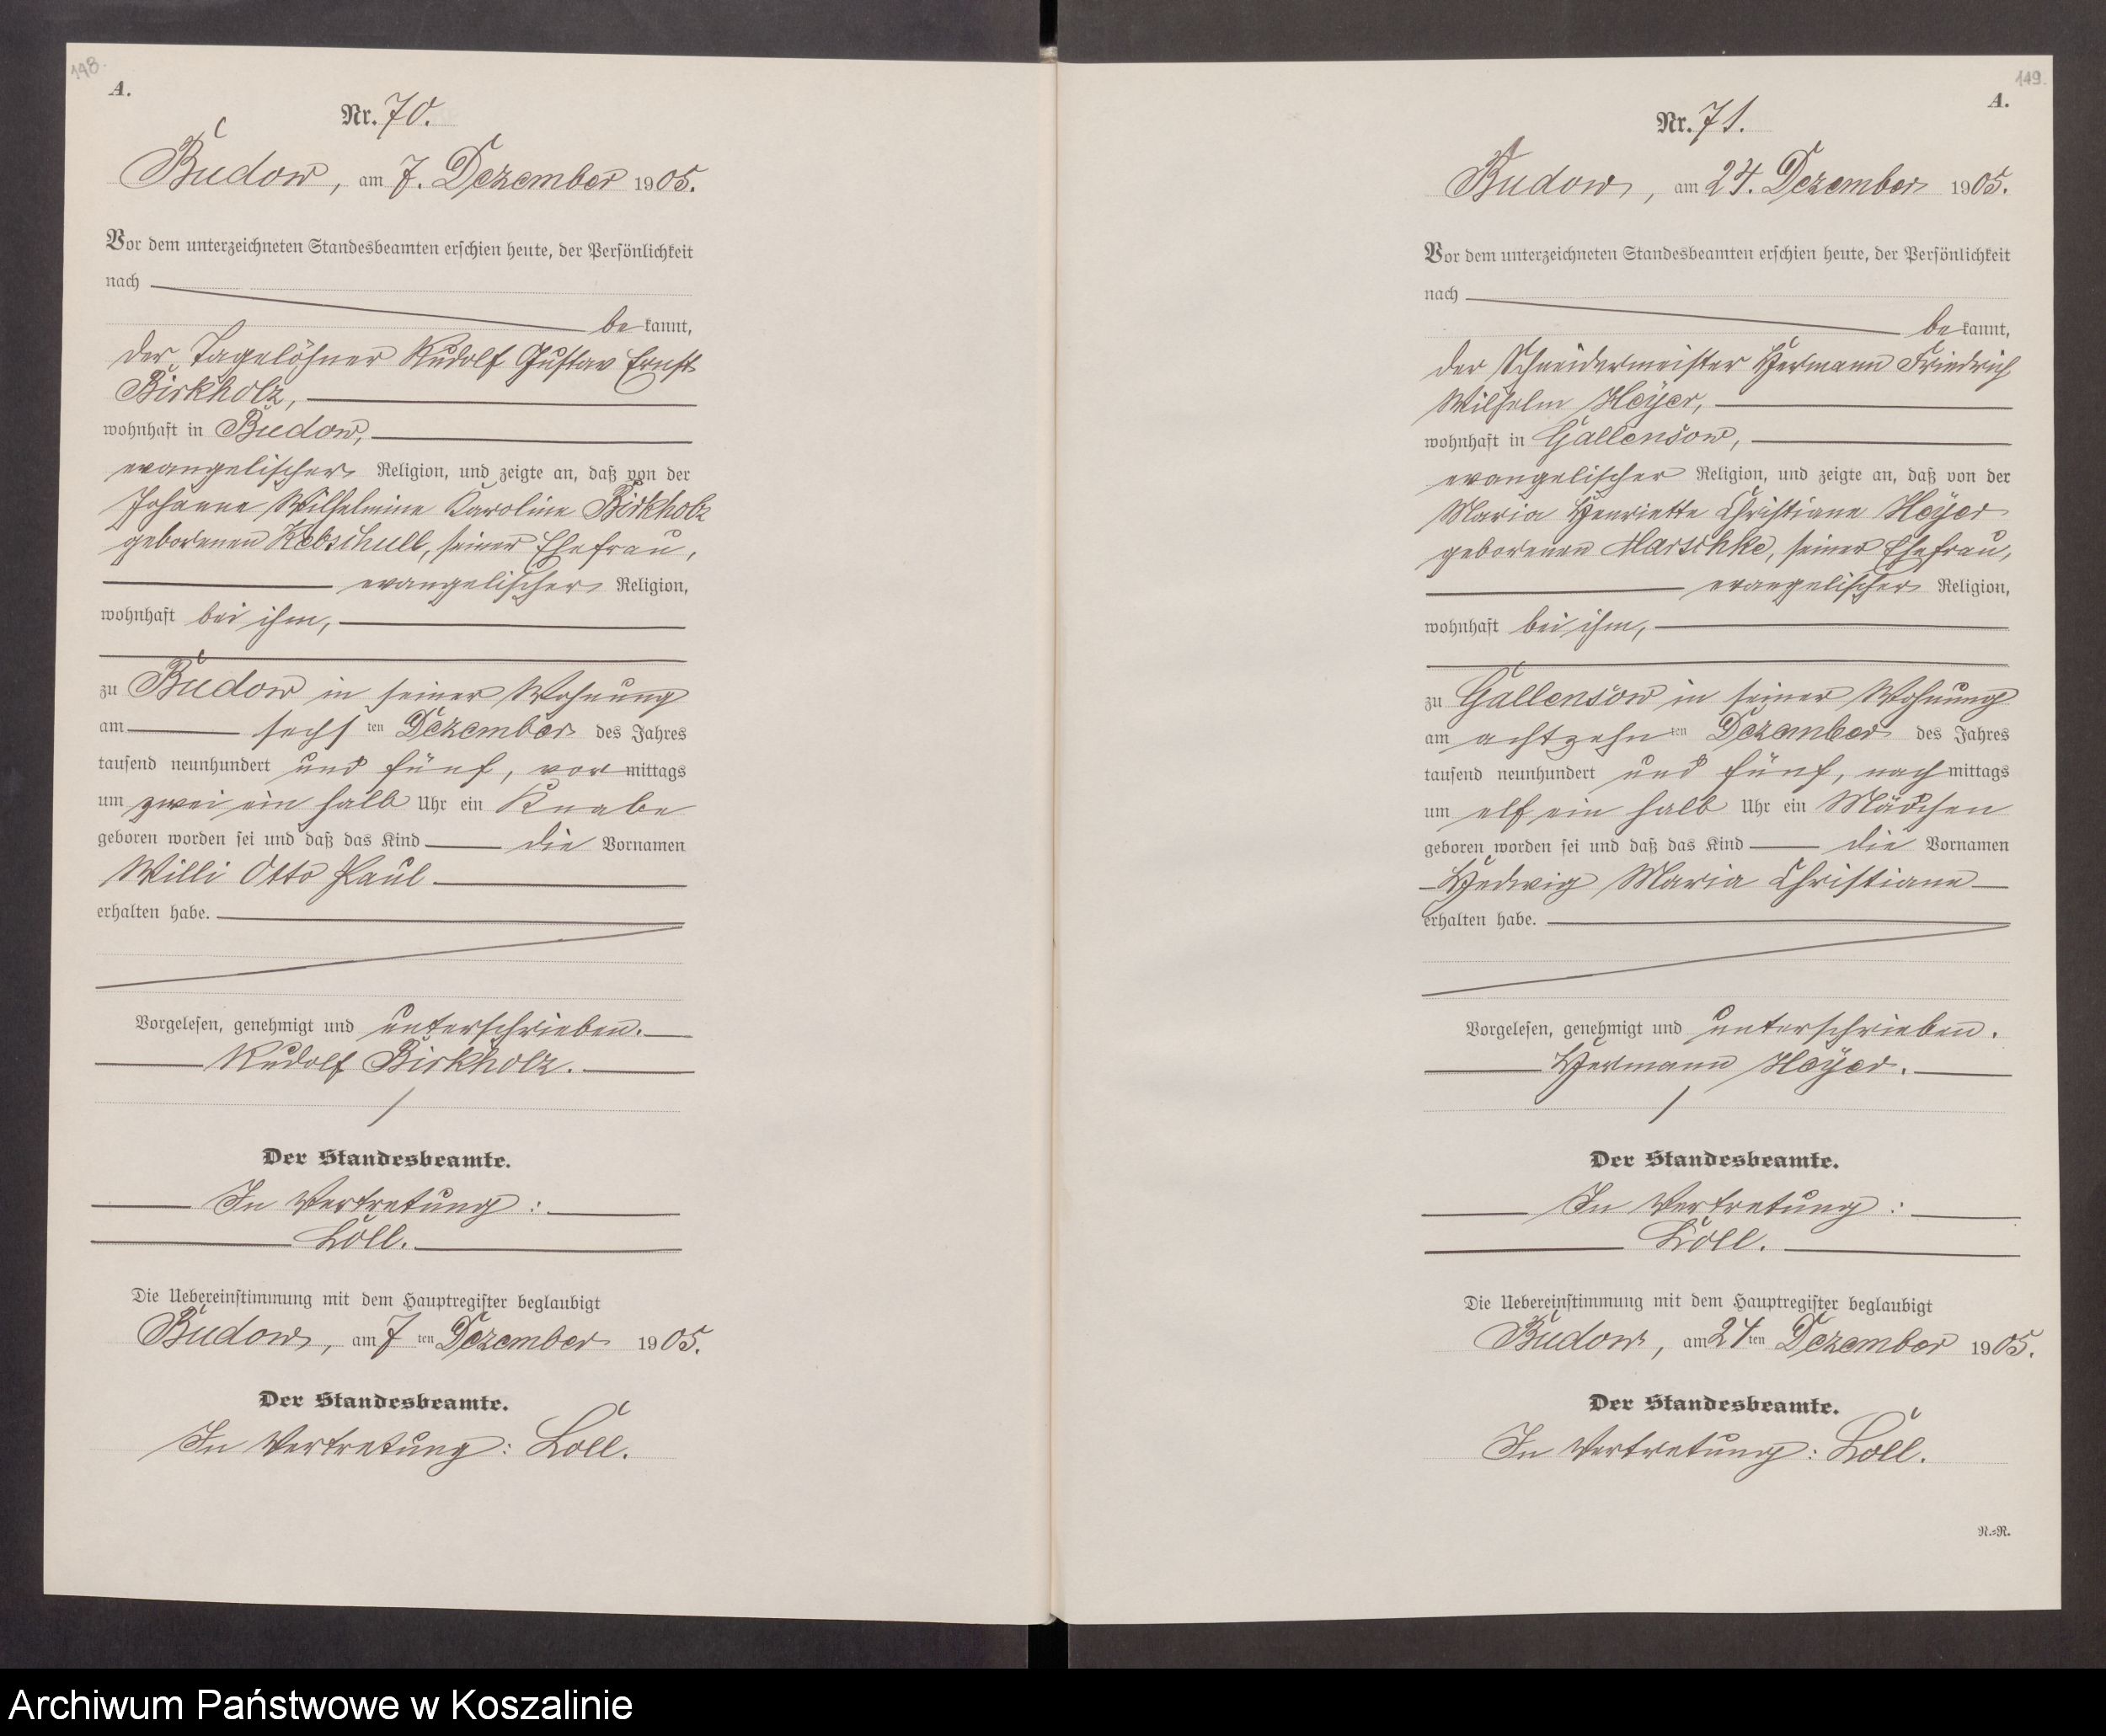 148.
A.
Nr. 70.
Budow, am 7. Dezember 1905.
Vor dem unterzeichneten Standesbeamten erschien heute, der Persönlichkeit
nach
bekannt,
der Tagelöhner Rudolf Gustav Ernst
Birkholz,
wohnhaft in Budow,
evangelischer Religion, und zeigte an, daß von der
Johanne Wilhelmine Karoline Birkholz
geborenen Kebschull, seiner Ehefrau,
evangelischer Religion,
wohnhaft bei ihm,
zu Budow in seiner Wohnung
am sechsten Dezember des Jahres
tausend neunhundert und fünf, vormittags
um zwei ein halb Uhr ein Knabe
geboren worden sei und daß das Kind die Vornamen
Willi Otto Paul
erhalten habe.
Vorgelesen, genehmigt und unterschrieben.
Rudolf Birkholz.
Der Standesbeamte.
In Vertretung:
Loll.
Die Uebereinstimmung mit dem Hauptregister beglaubigt
Budow, am 7ten Dezember 1905.
Der Standesbeamte.
In Vertretung: Loll.
149.
A.
Nr. 71.
Budow, am 24. Dezember 1905.
Vor dem unterzeichneten Standesbeamten erschien heute, der Persönlichkeit
nach
bekannt,
der Schneidermeister Hermann Friedrich
Wilhelm Heyer,
wohnhaft in Gallensow,
evangelischer Religion, und zeigte an, daß von der
Maria Henriette Christiane Heyer
geborenen Marschke, seiner Ehefrau,
evangelischer Religion,
wohnhaft bei ihm,
zu Gallensow in seiner Wohnung
am achtzehnten Dezember des Jahres
tausend neunhundert und fünf, nachmittags
um elf ein halb Uhr ein Mädchen
geboren worden sei und daß das Kind die Vornamen
Hedwig Maria Christiane
erhalten habe.
Vorgelesen, genehmigt und unterschrieben.
Hermann Heyer.
Der Standesbeamte.
In Vertretung:
Loll.
Die Uebereinstimmung mit dem Hauptregister beglaubigt
Budow, am 24ten Dezember 1905.
Der Standesbeamte.
In Vertretung: Loll.
N.=R.
Archiwum Państwowe w Koszalinie